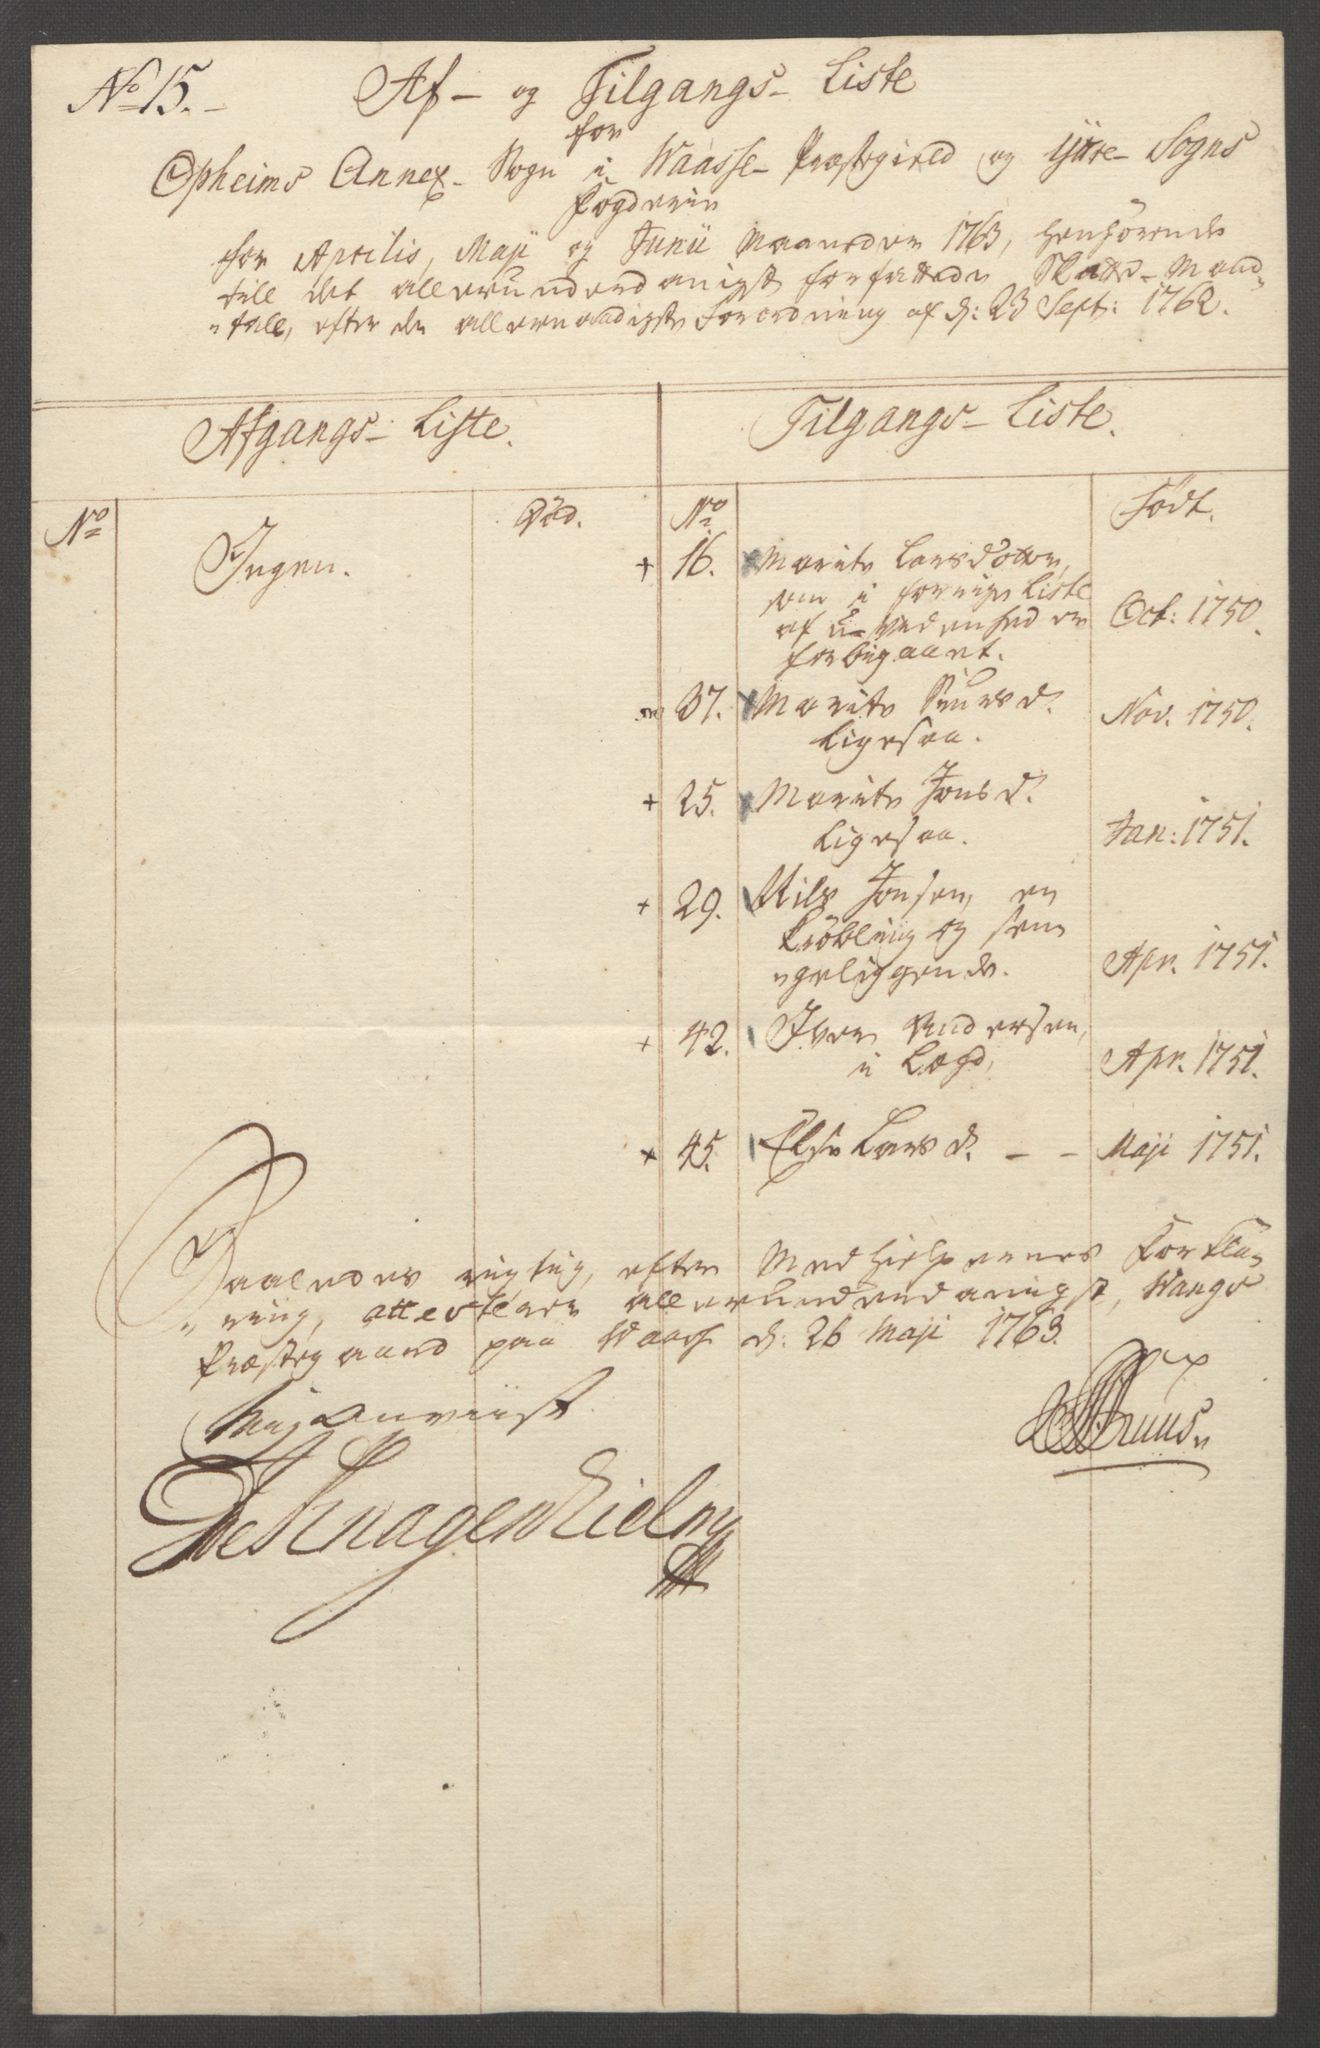 No 15.
Af- og Tilgangs- Liste
for
Opheims Annex- Sogn i Waasse- Præstegield og Yttre- Sogns
Fogderie
for Aprilis, Maji og Junii Maaneder 1763, henhörende
till det allerunderdanigst forfattede Skatte-Mand-
"tall, efter den allernaadigste Forordning af d: 23 Sept: 1762.
Afgangs- Liste.
Tilgangs- Liste.
No
Död.
No
Födt.
Ingen.
+ 16. Marite Larsdotter,
som i forrige Liste
af u-videnhed er
forbigaaet.
Oct: 1750.
37. Marite Siursd.
Ligesaa.
Nov. 1750.
+ 25. Marite Jonsd.
Ligesaa.
Jan: 1751.
+ 29. Nils Jonsen, en
Kröbling og sen-
"geliggende.
Apr. 1751.
+ 42. Iver Andersen,
i Lægd,
Apr. 1751.
+ 45. Else Larsd. - -
Maji 1751.
Saaledes rigtig, efter Medhielpernes Forkla-
"ring, attesterer allerunderdanigst, Wangs
Præstegaard paa Waass d: 26 Maji 1763.
Miltzow
Anviist
Knagenhielm